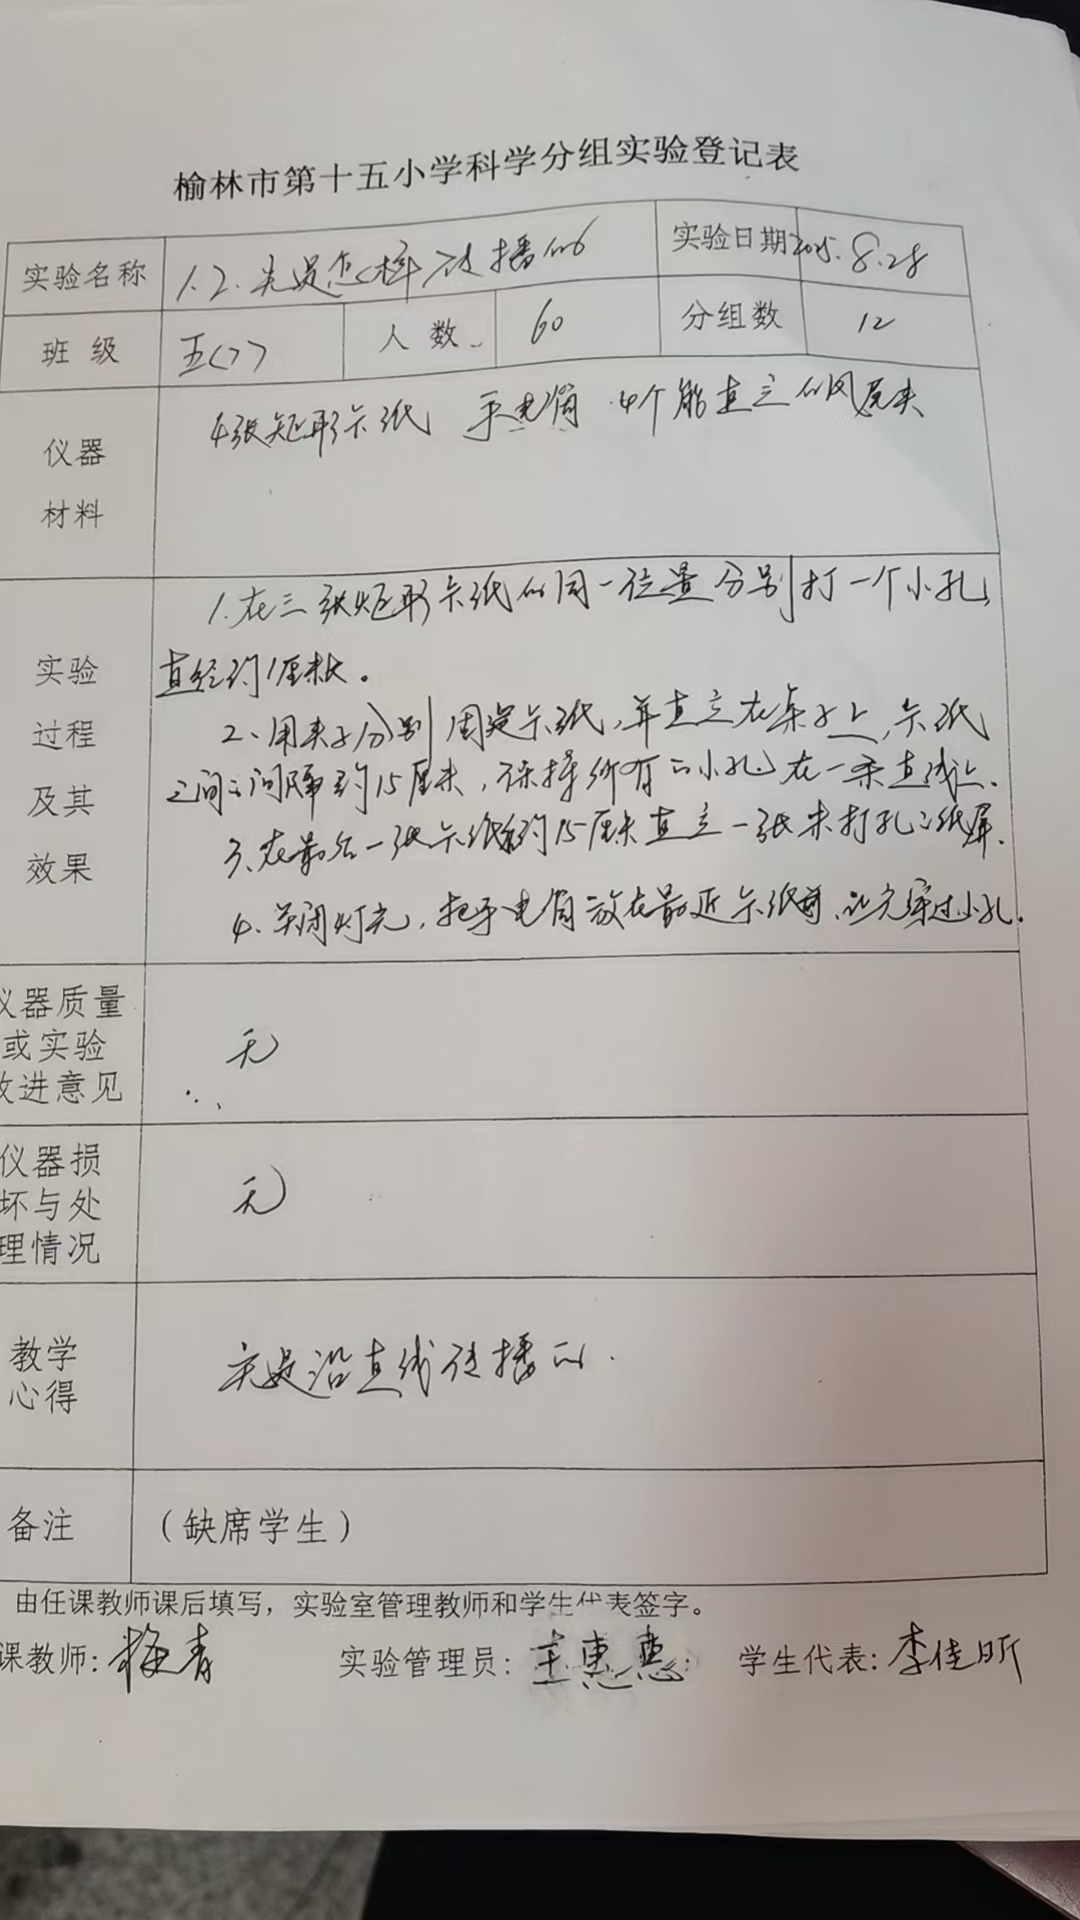 榆林市第十五小学科学分组实验登记表
实验名称 1.2.光是怎样传播的 实验日期 2025.8.28
班级 五(7) 人数 60 分组数 12
仪器材料 4张矩形卡纸 手电筒 4个能直立的凤尾夹
实验过程及其效果
1.在三张矩形卡纸的同一位置分别打一个小孔,
直径约1厘米。
2、用夹子分别固定卡纸,并直立在桌子上,卡纸
之间之间隔约15厘米,保持所有的小孔在一条直线上.
3、在最后一张卡纸后约15厘米直立一张未打孔的纸屏.
4、关闭灯光,把手电筒放在最近卡纸前,让光穿过小孔.
仪器质量
或实验
改进意见
无
仪器损
坏与处
理情况
无
教学
心得
光是沿直线传播的.
备注 (缺席学生)
由任课教师课后填写,实验室管理教师和学生代表签字。
课教师: 梅青 实验管理员: 王惠惠 学生代表: 李佳昕